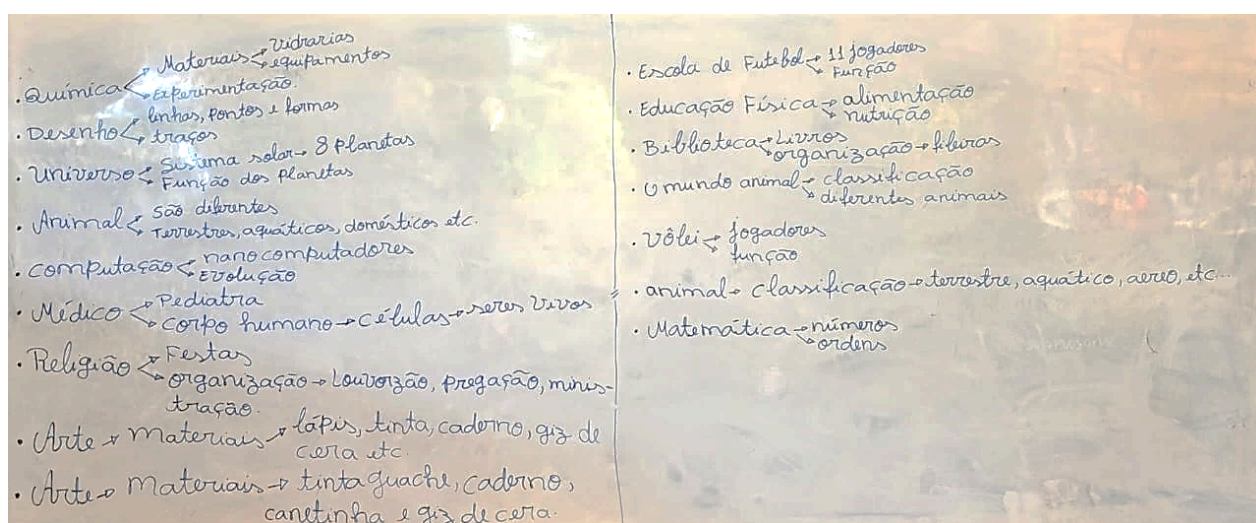 Materiais → vidrarias
→ equipamentos
. Química
→ Experimentação.
. Desenho → linhas, pontos e formas
→ traços
. Universo → Sistema solar → 8 Planetas
→ Função dos Planetas
. Animal → São diferentes
→ Terrestres, aquáticos, domésticos etc.
. computação → nanocomputadores
→ Evolução
. Médico → Pediatra
→ corpo humano → células → seres vivos
. Religião → Festas
→ organização → Louvorzão, pregação, minis-
tração.
. Arte → materiais → lápis, tinta, caderno, giz de
cera etc.
. Arte → materiais → tinta guache, caderno,
canetinha e giz de cera.
. Escola de Futebol → 11 jogadores
→ Função
. Educação Física → alimentação
→ nutrição
. Biblioteca → Livros
→ organização → fileiras
. O mundo animal → classificação
→ diferentes animais
. Vôlei → jogadores
→ função
. animal → classificação → terrestre, aquático, aereo, etc...
. Matemática → números
→ ordens